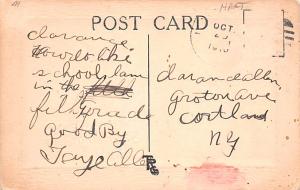 POST CARD
OCT
clarance
how do like
school I am
in the
fifth Grade
good By
Faye Allen
claran callen
groton ave
cortland
NY